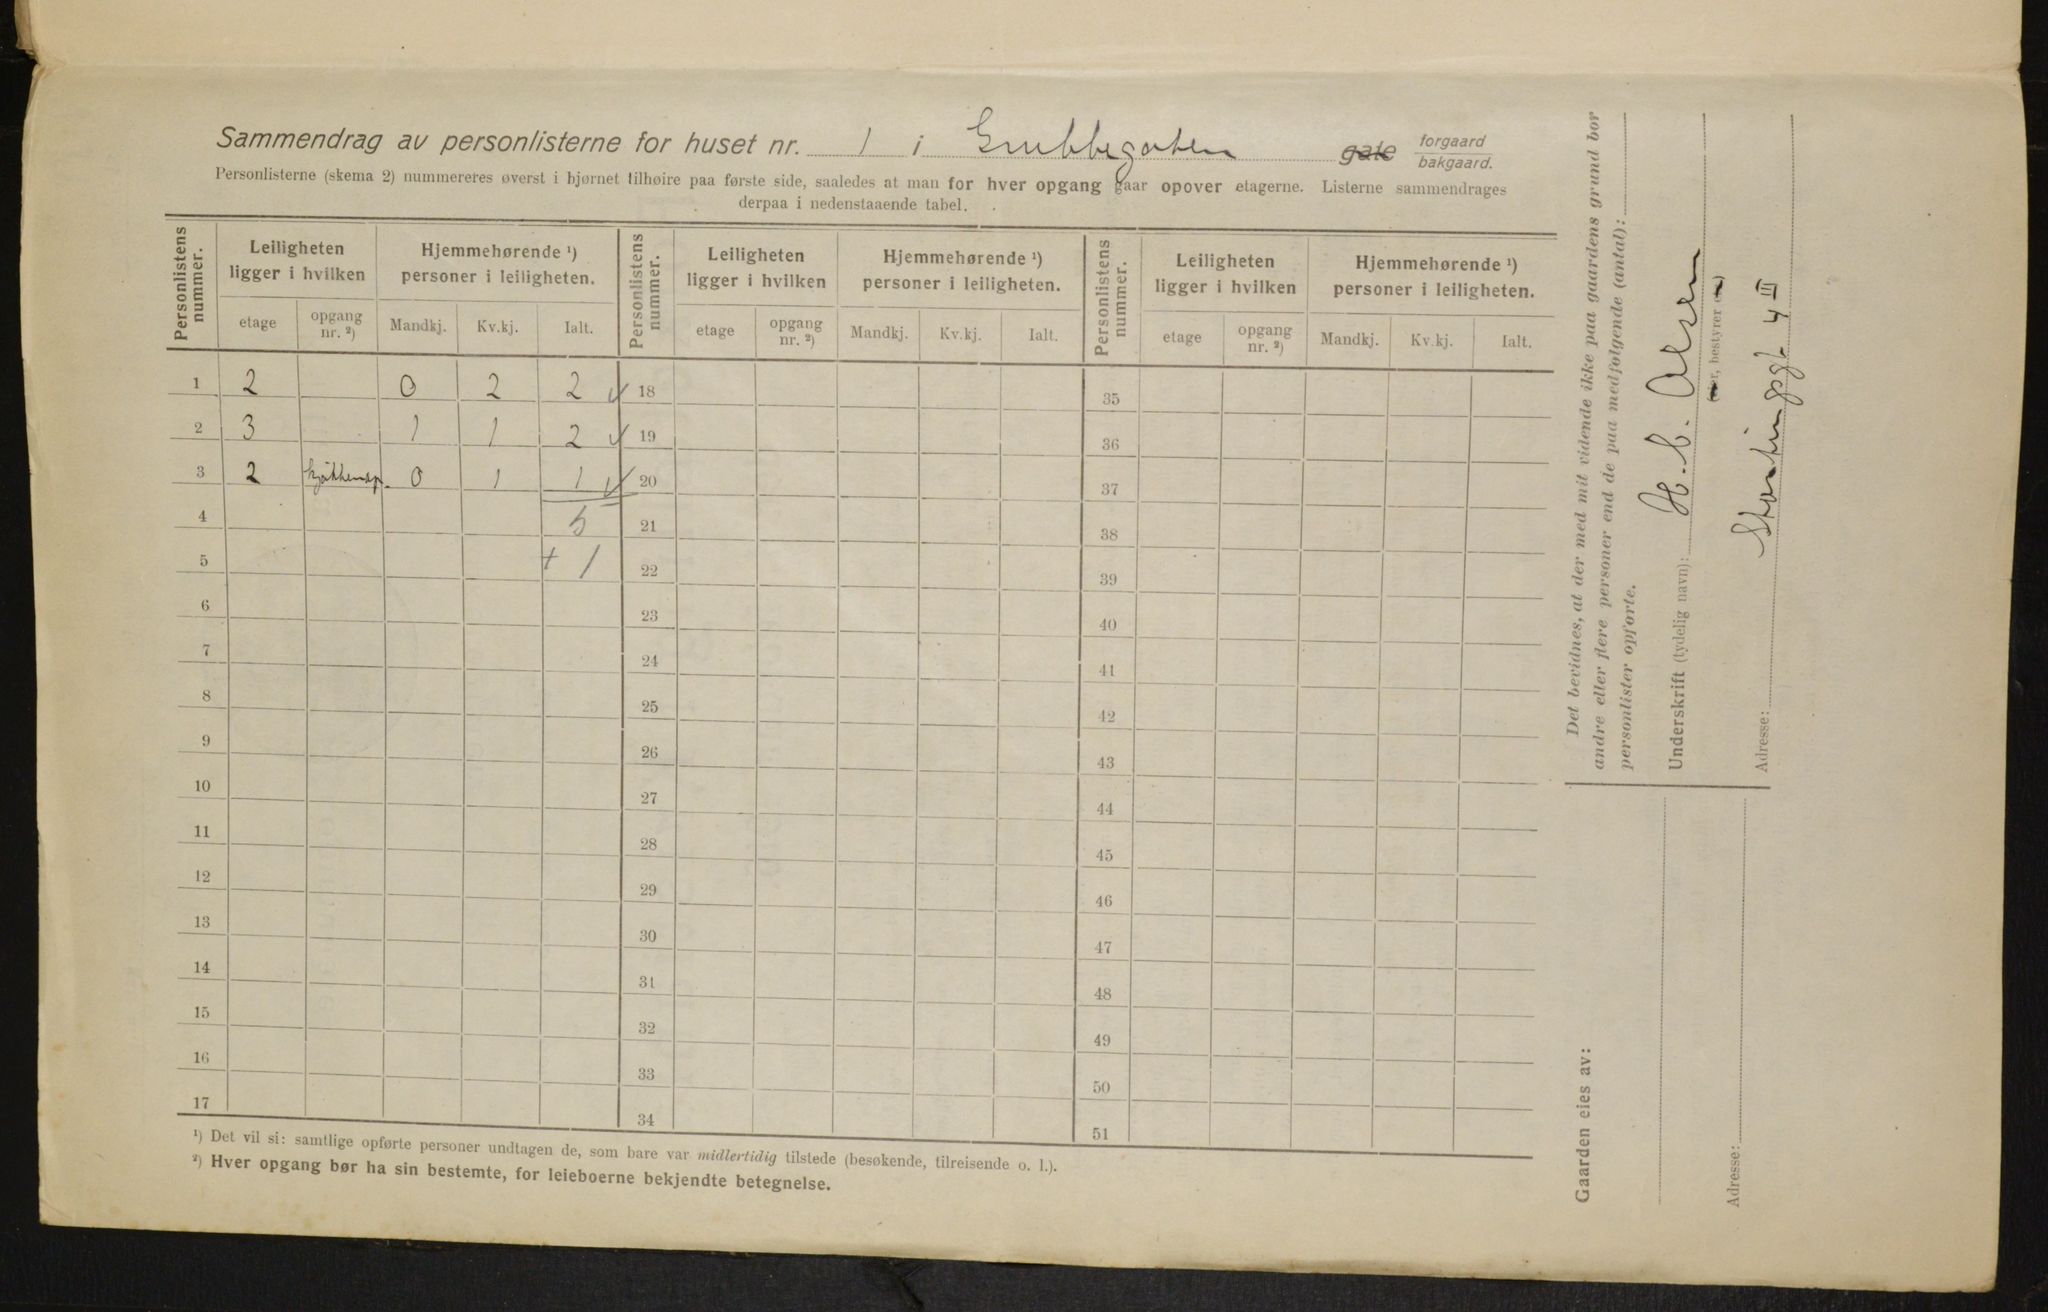 Sammendrag av personlisterne for huset nr. 1 i Grubbegaten gate forgaard bakgaard.
Personlisterne (skema 2) nummereres øverst i hjørnet tilhøire paa første side, saaledes at man for hver opgang gaar opover etagerne. Listerne sammendrages
derpaa i nedenstaaende tabel.
Personlistens nummer. Leiligheten ligger i hvilken Hjemmehørende ¹) personer i leiligheten. Personlistens nummer. Leiligheten ligger i hvilken Hjemmehørende ¹) personer i leiligheten. Personlistens nummer. Leiligheten ligger i hvilken Hjemmehørende ¹) personer i leiligheten.
etage opgang nr. ²) Mandkj. Kv.kj. Ialt. etage opgang nr. ²) Mandkj. Kv.kj. Ialt. etage opgang nr. ²) Mandkj. Kv.kj. Ialt.
1 2 0 2 2 ✓ 18 35
2 3 1 1 2 ✓ 19 36
3 2 kjøkkenop. 0 1 1 ✓ 20 37
4 5 21 38
5 + 1 22 39
6 23 40
7 24 41
8 25 42
9 26 43
10 27 44
11 28 45
12 29 46
13 30 47
14 31 48
15 32 49
16 33 50
17 34 51
¹) Det vil si: samtlige opførte personer undtagen de, som bare var midlertidig tilstede (besøkende, tilreisende o. l.).
²) Hver opgang bør ha sin bestemte, for leieboerne bekjendte betegnelse.
Det bevidnes, at der med mit vidende ikke paa gaardens grund bor
andre eller flere personer end de paa medfølgende (antal):
personlister opførte.
Underskrift (tydelig navn): H. C. Olsen
bestyrer
Adresse: Stortingsgt 4 III
Gaarden eies av:
Adresse: